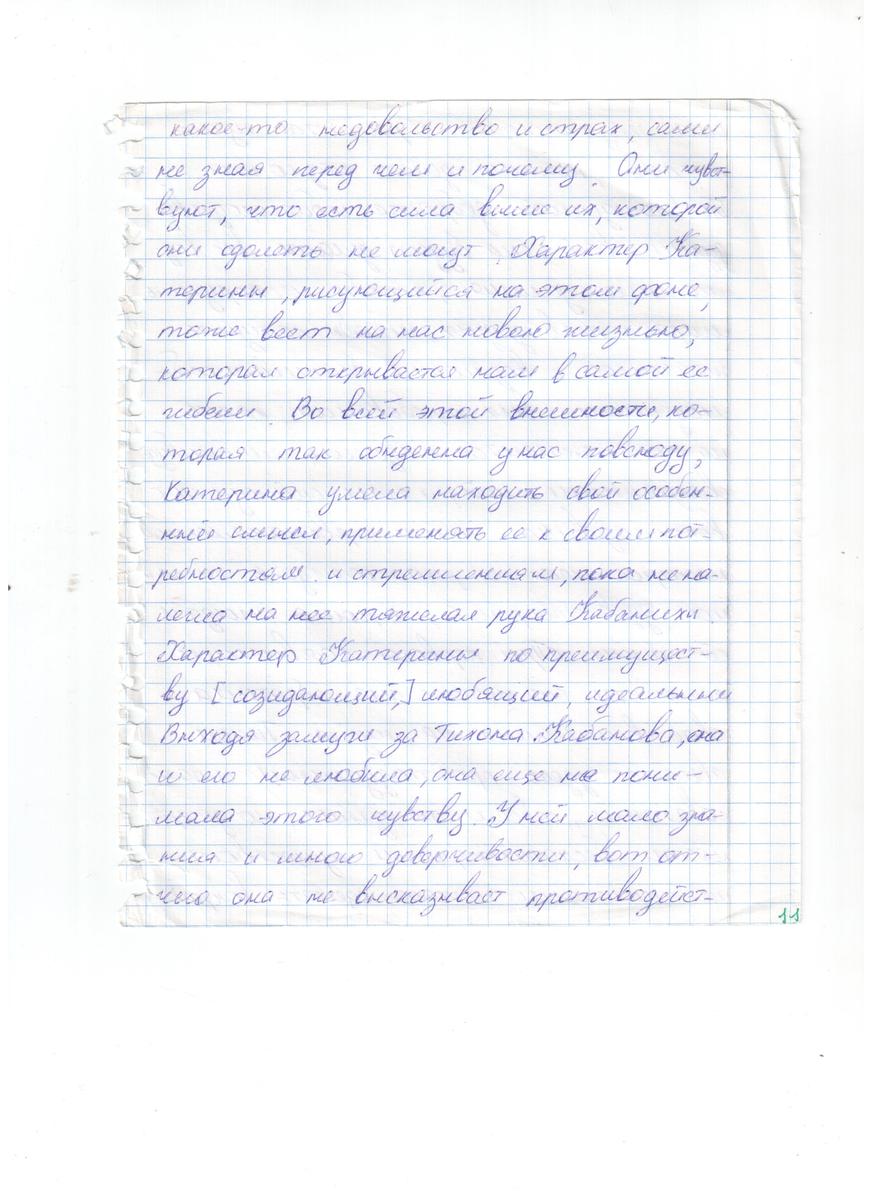 какое-то недовольство и страх, сами
не зная перед чем и почему. Они чувст-
вуют, что есть сила выше их, которой
они одолеть не могут. Характер Ка-
терины, рисующийся на этом фоне,
тоже веет на нас новою жизнью,
которая открывается нам в самой ее
гибели. Во всей этой внешности, ко-
торая так обыденна у нас повсюду,
Катерина умела находить свой особен-
ный смысл, применять ее к своим пот-
ребностям и стремлениям, пока не на-
легла на нее тяжелая рука Кабанихи.
Характер Катерины по преимущест-
ву [созидающий,] любящий, идеальный
Выходя замуж за Тихона Кабанова, она
и его не любила, она еще на пони-
мала этого чувству. У ней мало зна-
ния и много доверчивости, вот от-
чего она не высказывает противодейст-
11